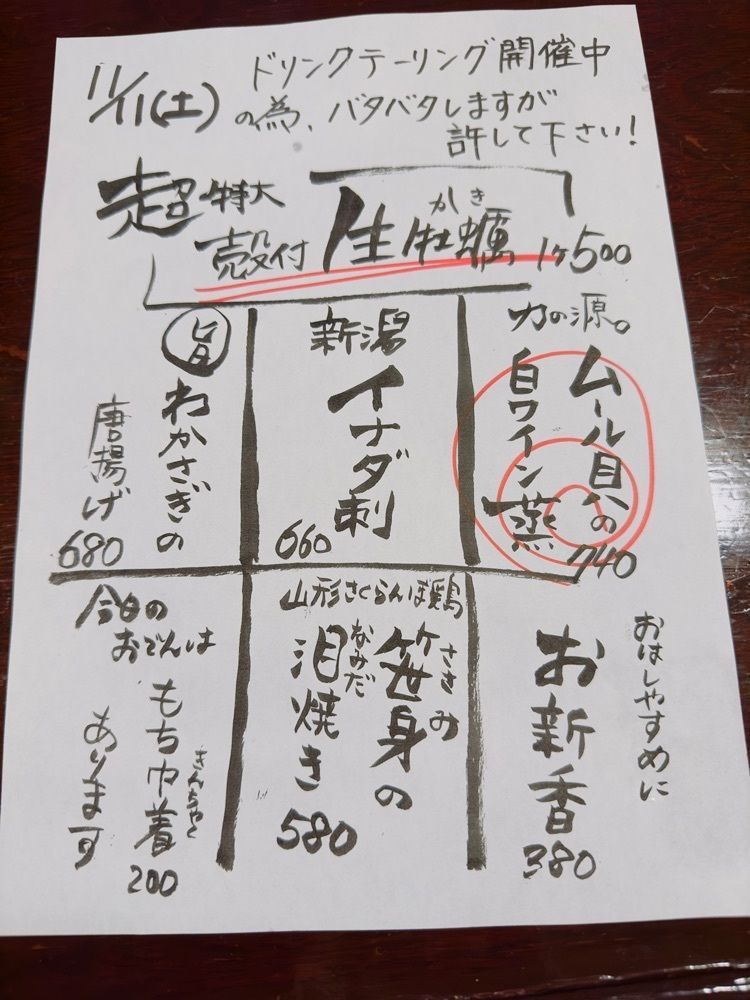 11/11(土)
ドリンクテーリング開催中
の為、バタバタしますが
許して下さい!
超特大
殻付 生牡蠣 1ヶ500
かき
力の源。
ムール貝の
白ワイン蒸
740
新潟
イナダ刺
660
旨
わかさぎの
唐揚げ
680
おはしやすめに
お新香
380
山形さくらんぼ鶏
笹身の
ささみ
泪焼き
なみだ
580
今日の
おでんは
もち巾着
きんちゃく
200
あります